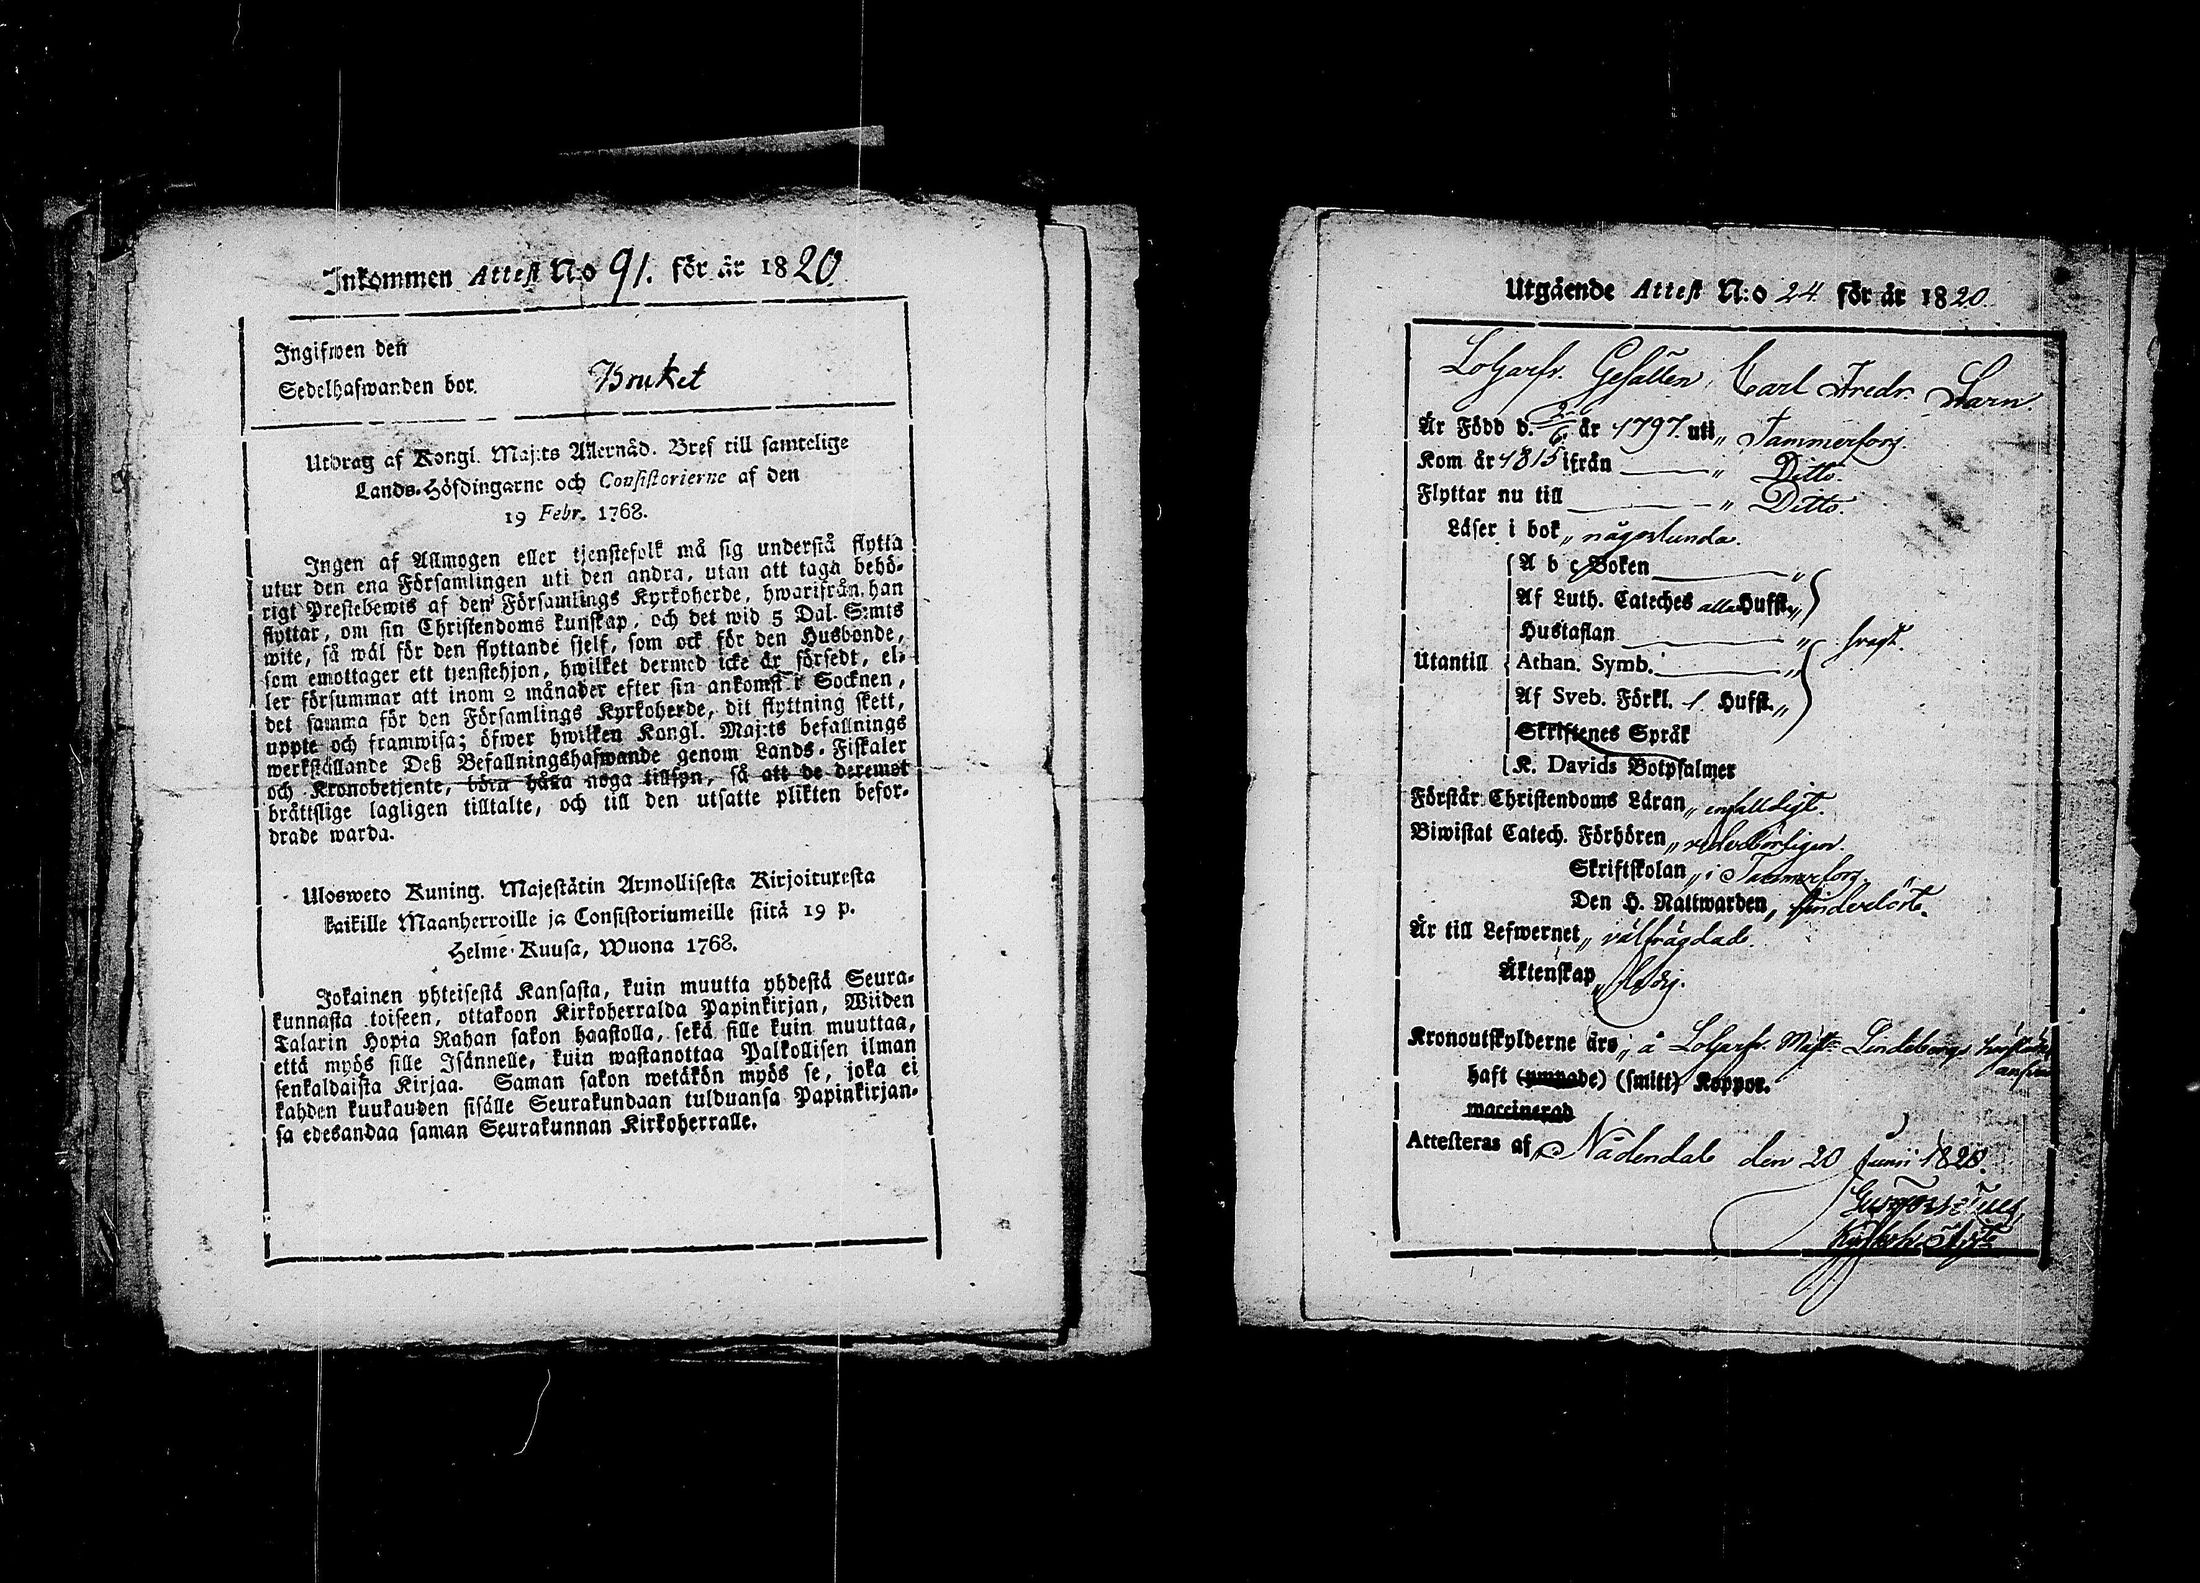 Inkommen Attest No 91. för år 1820.
Ingifwen den
Sedelhafwanden bor. Bruket
Utdrag af Kongl. Maj:ts Allernåd. Bref till samtelige
Lands-Höfdingarne och Consistorierne af den
19 Febr. 1768.
Ingen af Allmogen eller tjenstefolk må sig understå flytta
utur den ena Församlingen uti den andra, utan att taga behö-
rigt Prestebewis af den Församlings Kyrkoherde, hwarifrån han
flyttar, om sin Christendoms kunskap, och det wid 5 Dal. S:mts
wite, så wäl för den flyttande sjelf, som ock för den Husbonde,
som emottager ett tjenstehjon, hwilket dermed icke är försedt, el-
ler försummar att inom 2 månader efter sin ankomst i Socknen,
det samma för den Församlings Kyrkoherde, dit flyttning skett,
uppte och framwisa; öfwer hwilken Kongl. Maj:ts befallnings
werkställande Deß Befallningshafwande genom Lands-Fiskaler
och Kronobetjente, böra håfa noga tillsyn, så att de deremot
bråttslige lagligen tilltalte, och till den utsatte plikten befor-
drade warda.
Ulosweto Kuning. Majestätin Armollisesta Kirjoituxesta
kaikille Maanherroille ja Consistoriumeille siitä 19 p.
Helme-Kuusa, Wuona 1768.
Jokainen yhteisestä Kansasta, kuin muutta yhdestä Seura-
kunnasta toiseen, ottakoon Kirkoherralda Papinkirjan, Wiiden
Talarin Hopia Rahan sakon haastolla, sekä sille kuin muuttaa,
että myös sille Isännelle, kuin wastanottaa Palkollisen ilman
senkaldaista Kirjaa. Saman sakon wetäkön myös se, joka ei
kahden kuukauden sisälle Seurakundaan tulduansa Papinkirjan-
sa edesandaa saman Seurakunnan Kirkoherralle.
Utgående Attest N:o 24 för år 1820.
Lohgarfv. Gesällen, Carl Fredr. Starn.
Är Född d. 2/6 år 1797. uti „ Tammerforss.
Kom år 1815 ifrån „ Ditto.
Flyttar nu till „ Ditto.
Läser i bok „ någorlunda.
A b c Boken „
Af Luth. Cateches alla Hufst. „
Hustaflan „ svagt.
Utantill Athan. Symb. „
Af Sveb. Förkl. 1 Hufst. „
Skriftenes Språk
K. Davids Botpsalmer
Förstår Christendoms Läran „ enfalldigt.
Biwistat Catech. Förhören „ vederbörligen.
Skriftskolan „ i Tammerforss.
Den H. Nattwarden „
Är till Lefwernet „ välfrägdad.
Äktenskap „ ledig.
Kronoutskylderne äro „ å Lohgarfv. Mäst. Lindebergs
haft (ympade) (smitt) Koppor.
waccinerad
Attesteras af Nådendal den 20 Junii 1820.